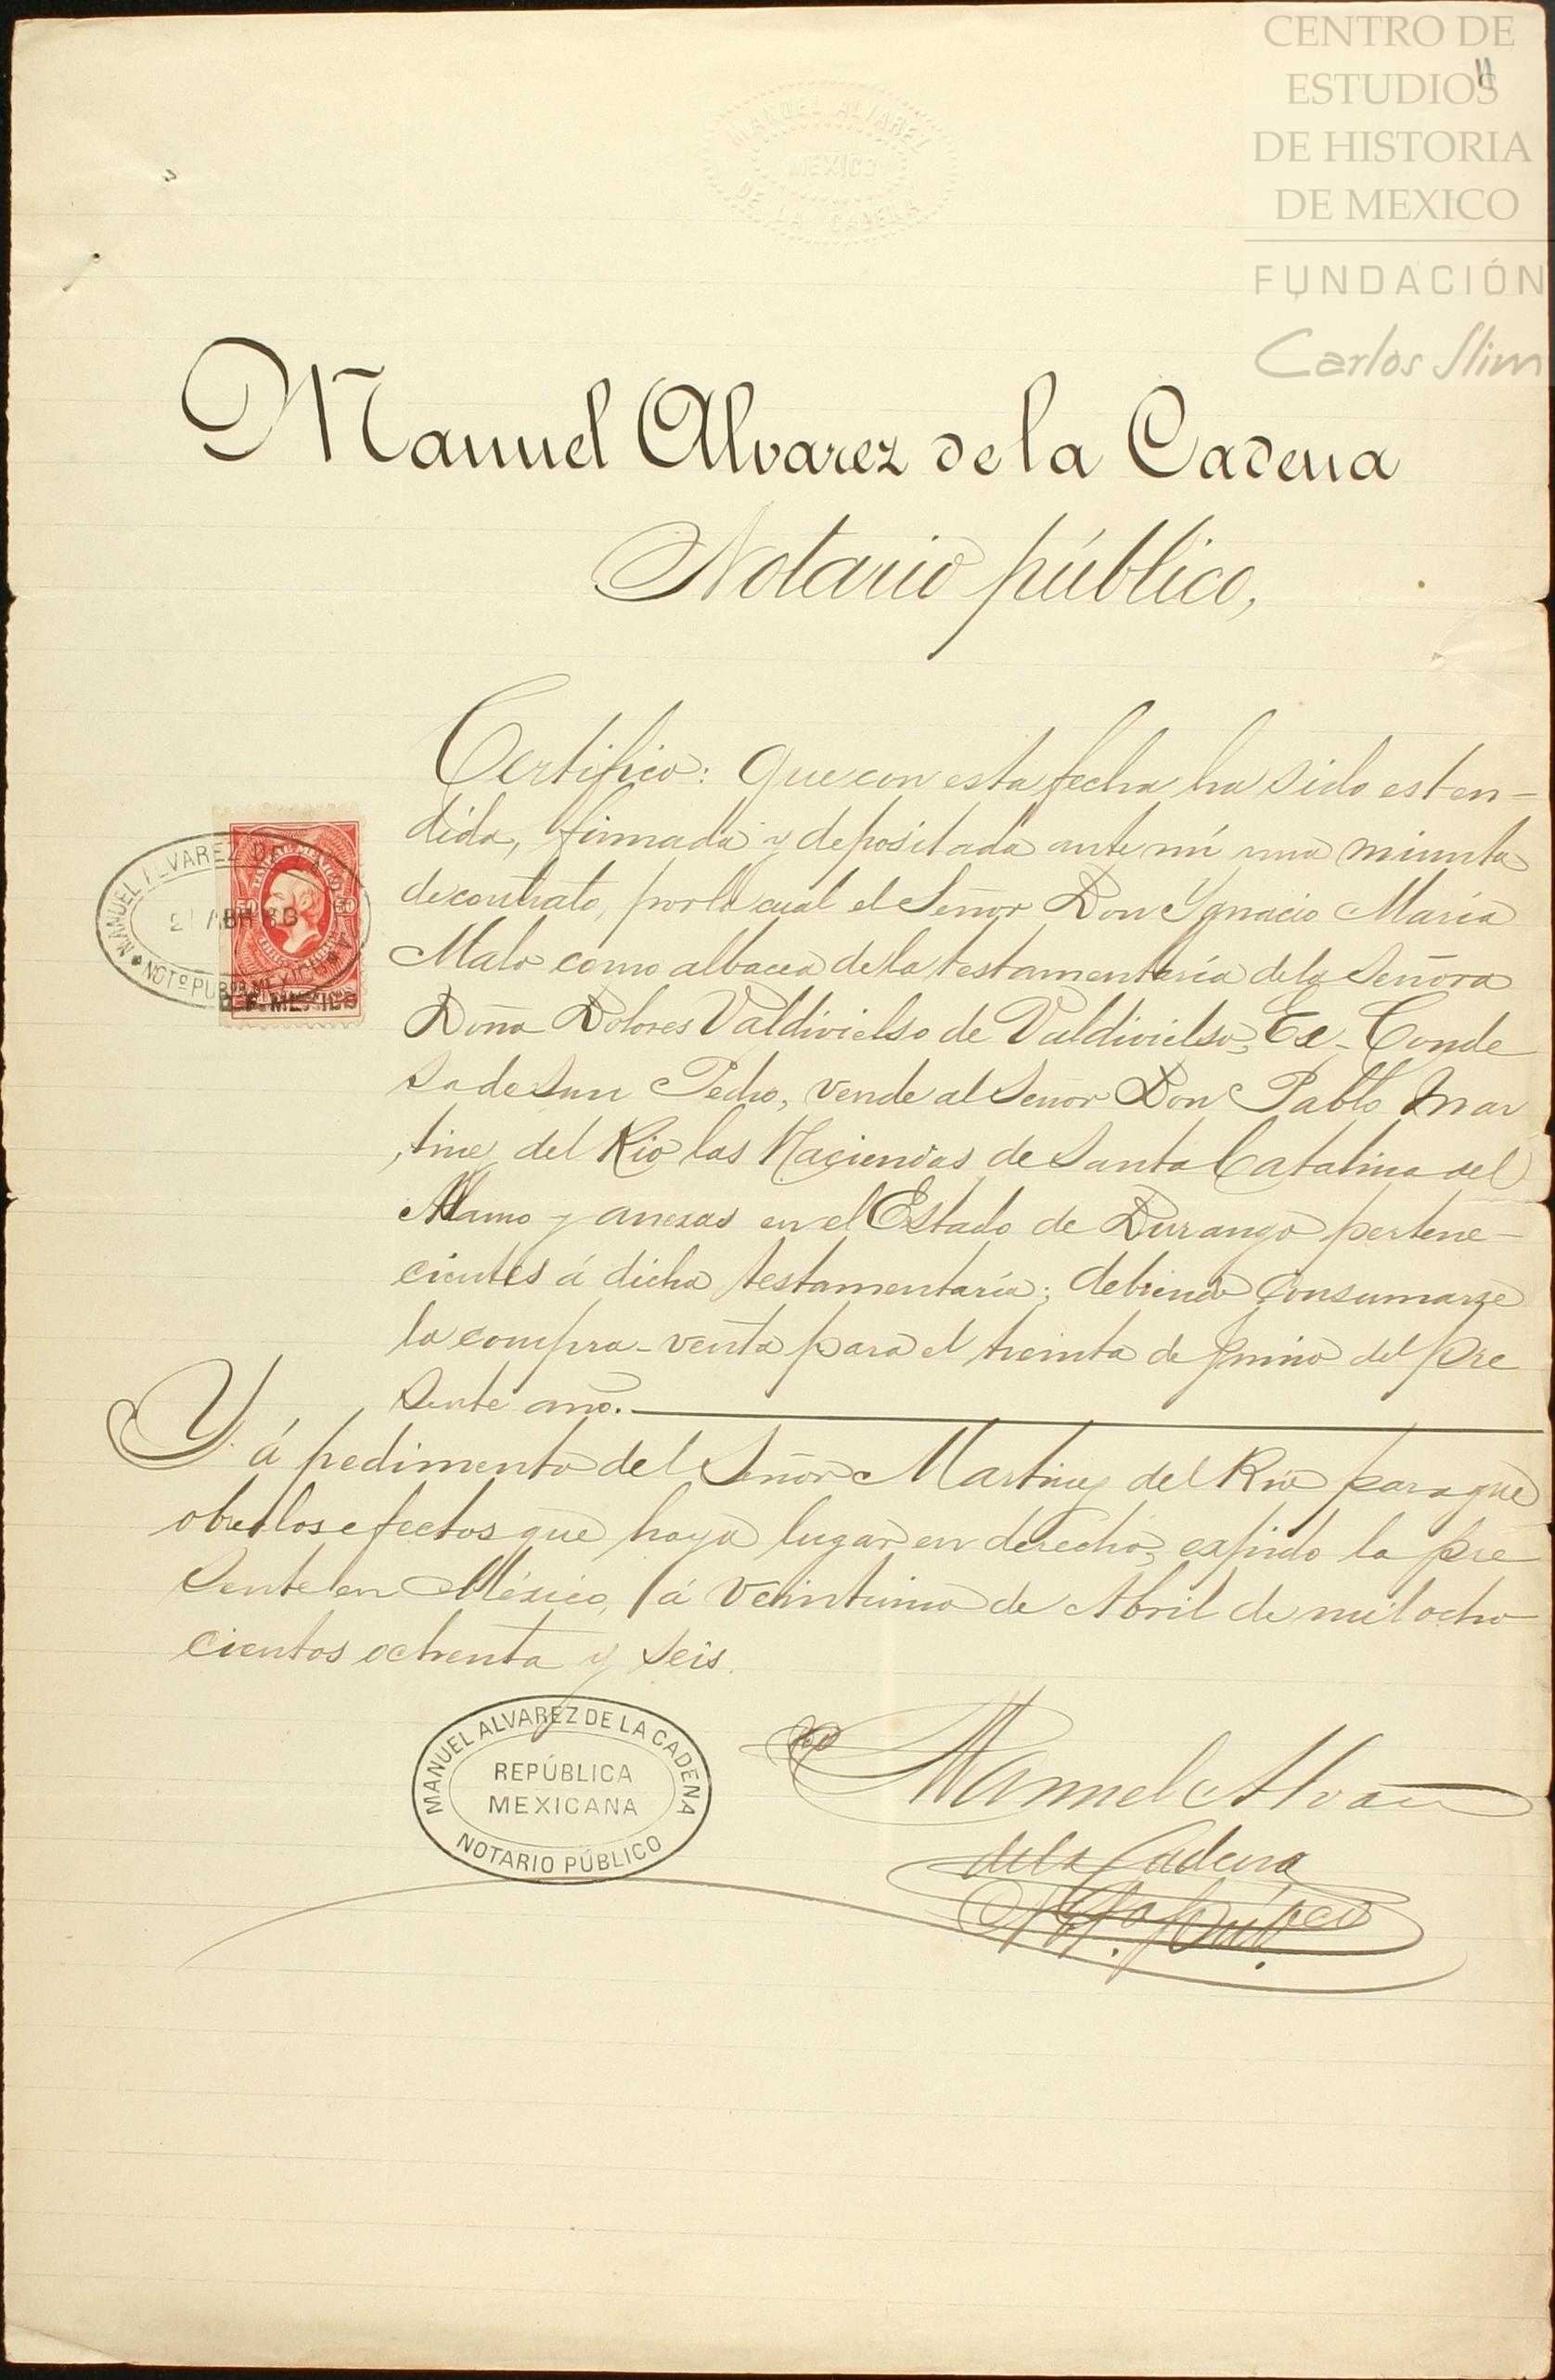 CENTRO DE
ESTUDIOS
DE HISTORIA
DE MEXICO
FUNDACIÓN
Carlos Slim
11
MANUEL ALVAREZ
MEXICO
DE LA CADENA
Manuel Alvarez de la Cadena
Notario público,
Certifico: Que con esta fecha ha sido esten-
dida, firmada y depositada ante mi una minuta
de contrato, por la cual el Señor Don Ygnacio María
Malo como albacea de la testamentaría de la Señora
Doña Dolores Valdivielso de Valdivielso, Ex-Conde
sa de San Pedro, vende al Señor Don Pablo Mar
tinez del Rio las Haciendas de Santa Catalina del
Alamo y anexas en el Estado de Durango pertene-
cientes á dicha testamentaría; debiendo consumarse
la compra-venta para el treinta de Junio del pre
sente año.
Y á pedimento del Señor Martinez del Rio para que
obre los efectos que haya lugar en derecho, expido la pre
sente en México, á veintiuno de Abril de mil ocho
cientos ochenta y seis.
MANUEL ALVAREZ DE LA
21 ABR 86
NOTº PUB
50 50
D. F. MEXICO
MANUEL ALVAREZ DE LA CADENA
REPÚBLICA
MEXICANA
NOTARIO PÚBLICO
Manuel Alvarez
de la Cadena
Not. Púb.